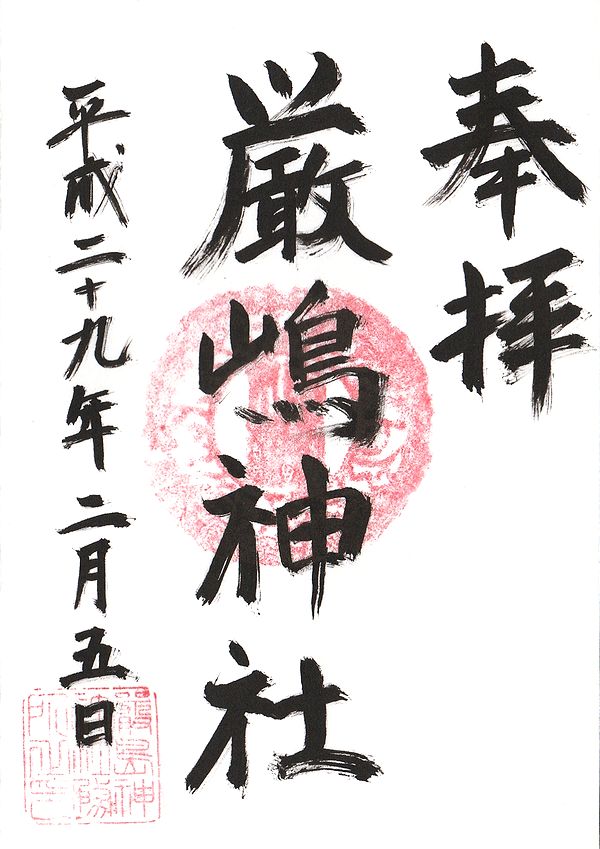 奉拝
厳嶋神社
平成二十九年二月五日